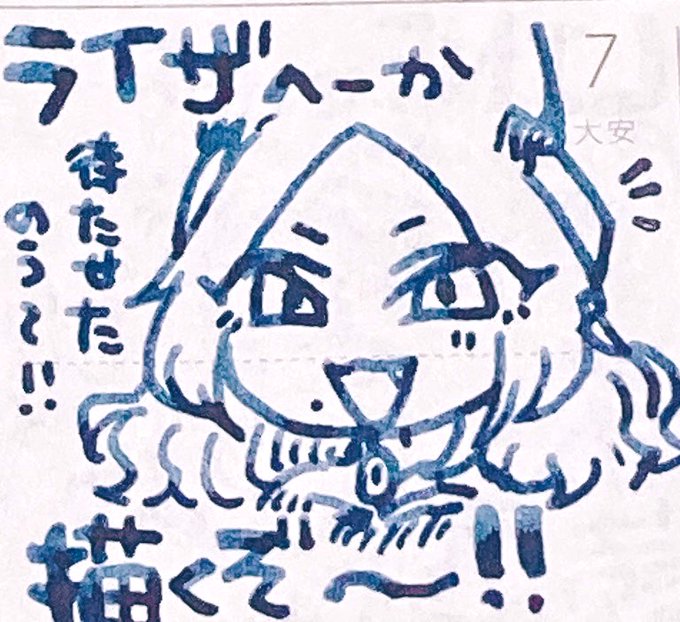 ライザへーか
待たせた
のう~!!
描くぞ~!!
7
大安